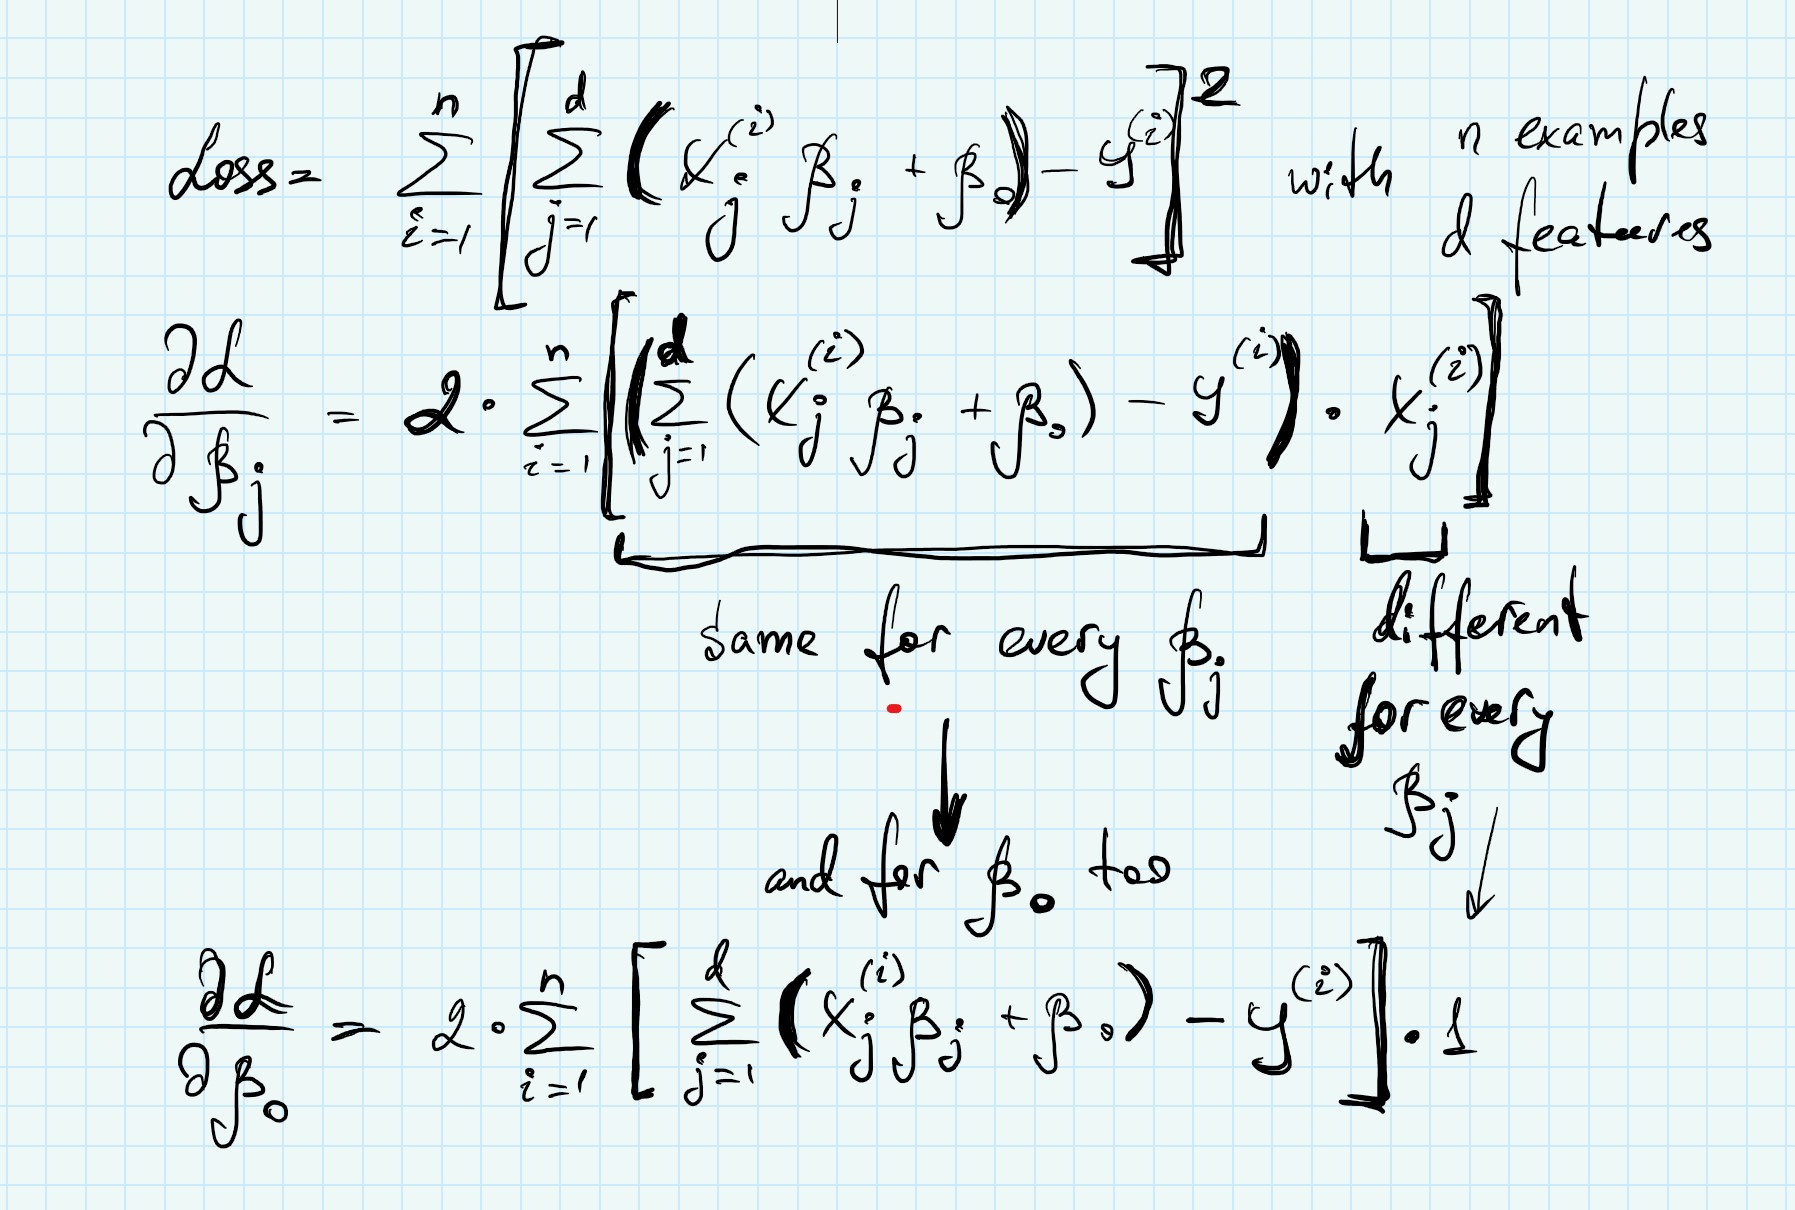 Loss = \sum_{i=1}^{n} [ \sum_{j=1}^{d} ( x_j^{(i)} β_j + β_0 ) - y^{(i)} ]^2 with n examples
d features
∂L/∂β_j = 2 · \sum_{i=1}^{n} [ ( \sum_{j=1}^{d} ( x_j^{(i)} β_j + β_0 ) - y^{(i)} ) · x_j^{(i)} ]
same for every β_j
different
for every
β_j
and for β_0 too
∂L/∂β_0 = 2 · \sum_{i=1}^{n} [ \sum_{j=1}^{d} ( x_j^{(i)} β_j + β_0 ) - y^{(i)} ] · 1